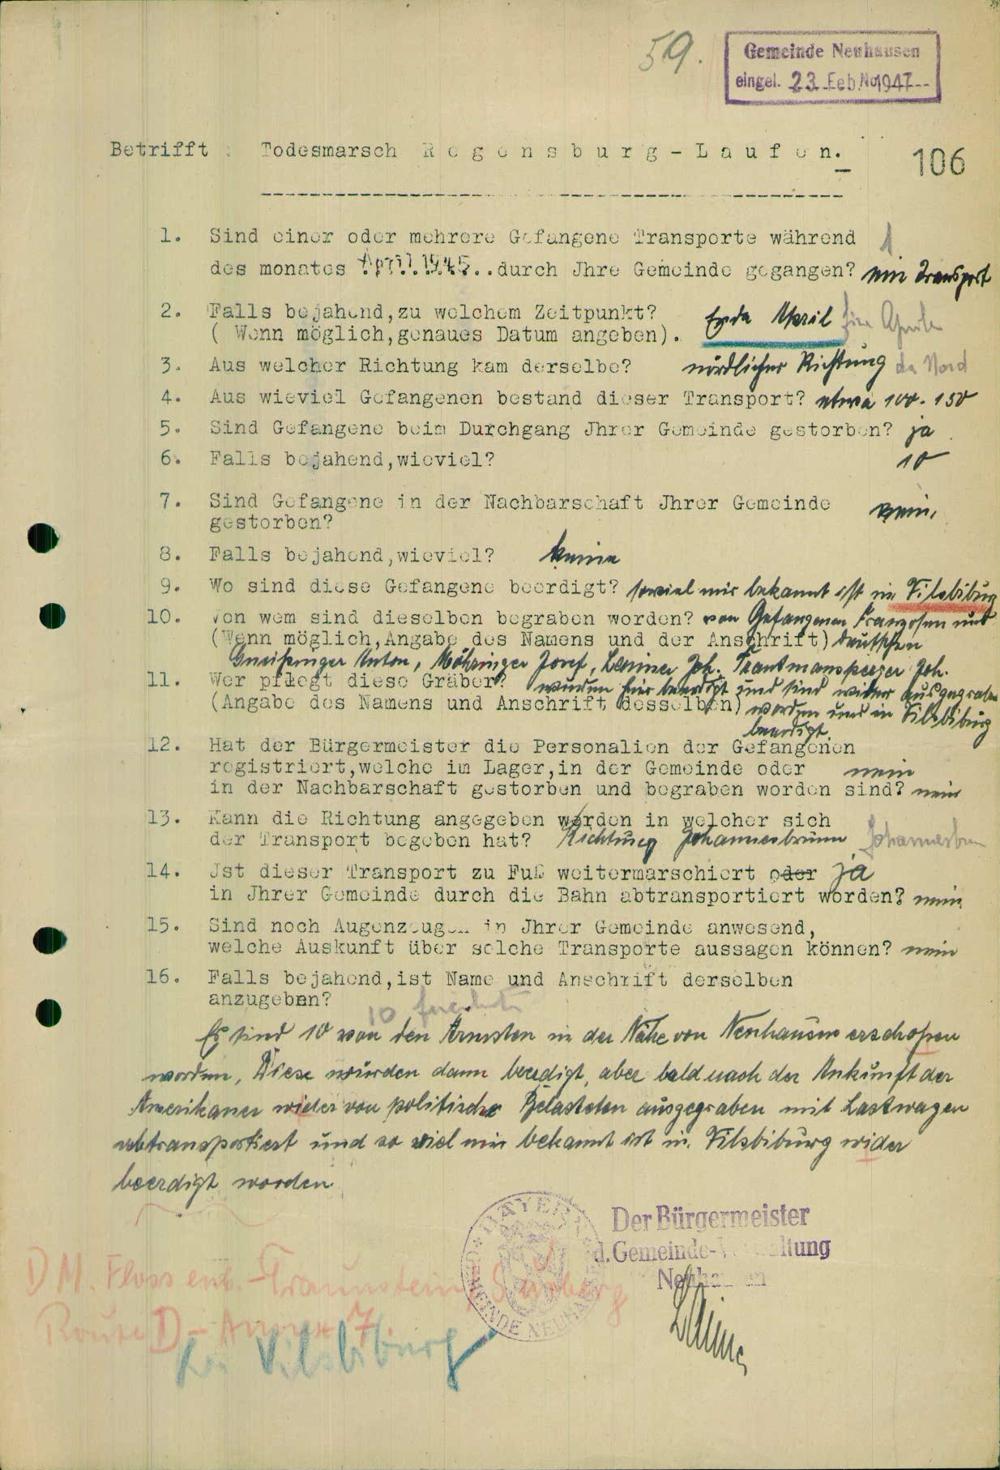 59.
Gemeinde Neuhausen
eingel. 23. Feb. No 1947
Betrifft : Todesmarsch Regensburg-Laufen.
106
1. Sind einer oder mehrere Gefangene Transporte während 1
des monates April 1945.. durch Jhre Gemeinde gegangen? ein Transport
2. Falls bejahend,zu welchem Zeitpunkt? Ende April
( Wenn möglich,genaues Datum angeben).
3. Aus welcher Richtung kam derselbe? nördlicher Richtung da Nord
4. Aus wieviel Gefangenen bestand dieser Transport? etwa 100-150
5. Sind Gefangene beim Durchgang Jhrer Gemeinde gestorben? ja
6. Falls bejahend,wieviel? 10
7. Sind Gefangene in der Nachbarschaft Jhrer Gemeinde nein,
gestorben?
8. Falls bejahend,wieviel? keine
9. Wo sind diese Gefangene beerdigt? soviel mir bekannt ist in Vilsbiburg
10. Von wem sind dieselben begraben worden? von Gefangenen Franzosen und
(Wenn möglich,Angabe des Namens und der Anschrift) deutschen
Anton, Josef, Joh. Joh.
11. Wer pflegt diese Gräber? wurden hier beerdigt und sind wieder ausgegraben
(Angabe des Namens und Anschrift desselben) worden und in Vilsbiburg
beerdigt.
12. Hat der Bürgermeister die Personalien der Gefangenen
registriert,welche im Lager,in der Gemeinde oder nein
in der Nachbarschaft gestorben und begraben worden sind? nein
13. Kann die Richtung angegeben werden in welcher sich
der Transport begeben hat? Richtung Johannesbrunn Johannesbrun
14. Jst dieser Transport zu Fuß weitermarschiert oder ja
in Jhrer Gemeinde durch die Bahn abtransportiert worden? nein
15. Sind noch Augenzeugen in Jhrer Gemeinde anwesend,
welche Auskunft über solche Transporte aussagen können? nein
16. Falls bejahend,ist Name und Anschrift derselben
anzugeben?
10
Es sind 10 von den Ärmsten in der Nähe von Neuhausen erschossen
worden, Diese wurden dann beerdigt, aber bald nach der Ankunft der
Amerikaner wider von politische Belasteten ausgegraben mit Lastwagen
abtransportiert und so viel mir bekannt ist in Vilsbiburg wider
beerdigt worden
BAYERN
GEMEINDE NEUHAUSEN
Der Bürgermeister
d.Gemeinde-Verwaltung
Neuhausen
D.M. Flossenb. - Traunstein,
Route D - Annex 7.
bei Vilsbiburg